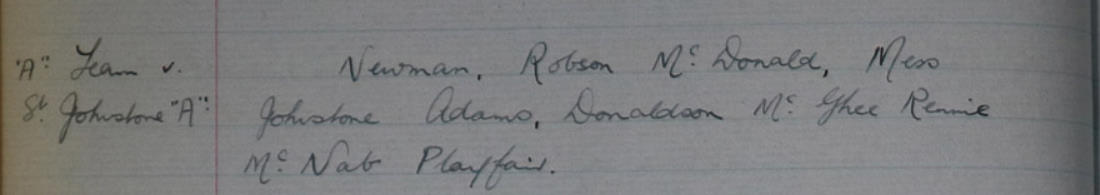 "A" Team v. Newman, Robson Mc Donald, Mess
St. Johnstone "A": Johnstone Adams, Donaldson Mc Ghee Rennie
Mc Nab Playfair.